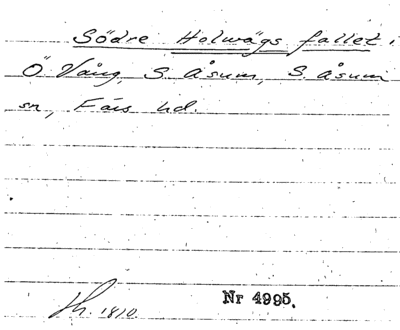 Södre Holwägs fallet i
Ö Vång, S. Åsum, S. Åsum
sn, Färs hd.
1810.
Nr 4995.